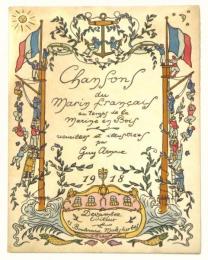 Chansons
du
Marin Français
au temps de la
Marine en Bois
recueillies & illustrées
par
Guy Arnoux
1918
Devambez
Editeur
Boulevard Malesherbes